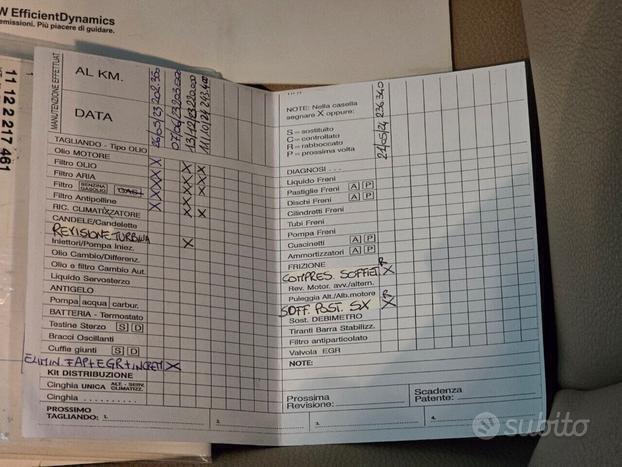 W EfficientDynamics
emissioni. Più piacere di guidare.
11 12 2 217 461
MANUTENZIONE EFFETTUAT
AL KM.
DATA
26/05/23 202.350
07/06/23 203.000
13/12/23 220.000
11/10/24 243.400
TAGLIANDO - Tipo OLIO
Olio MOTORE
Filtro OLIO
Filtro ARIA
Filtro BENZINA GASOLIO GAS
Filtro Antipolline
RIC. CLIMATIZZATORE
CANDELE/Candelette
REVISIONE TURBINA
Iniettori/Pompa Iniez.
Olio Cambio/Differenz.
Olio e filtro Cambio Aut.
Liquido Servosterzo
ANTIGELO
Pompa acqua carbur.
BATTERIA - Termostato
Testine Sterzo S D
Bracci Oscillanti
Cuffie giunti S D
ELIMIN. FAP+EGR+
Kit DISTRIBUZIONE
Cinghia UNICA ALT. - SERV. CLIMATIZZ.
Cinghia . . . . . . . . . .
PROSSIMO
TAGLIANDO: 1.
2.
NOTE: Nella casella
segnare X oppure:
S = sostituito
C = controllato
R = rabboccato
P = prossima volta
21/05/24 236.340
DIAGNOSI . . .
Liquido Freni
Pastiglie Freni A P
Dischi Freni A P
Cilindretti Freni
Tubi Freni
Pompa Freni
Cuscinetti A P
Ammortizzatori A P
FRIZIONE
COMPRES. SOFFIET. R
Rev. Motor. avv./altern.
Puleggia Alt./Alb.motore
SOFF. POST. SX R
Sost. DEBIMETRO
Tiranti Barra Stabilizz.
Filtro antiparticolato
Valvola EGR
NOTE:
Prossima
Revisione:
Scadenza
Patente:
3.
4.
subito